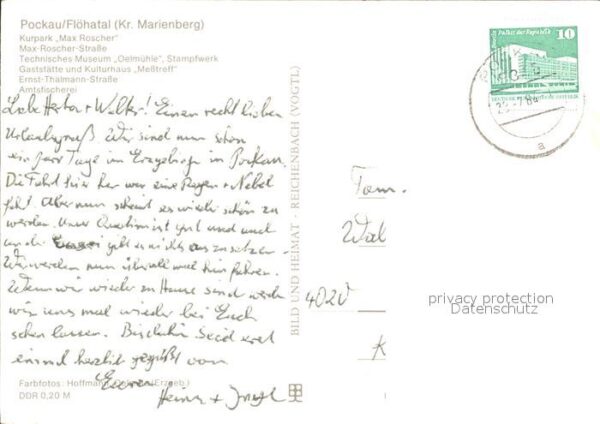 Pockau/Flöhatal (Kr. Marienberg)
Kurpark „Max Roscher"
Max-Roscher-Straße
Technisches Museum „Oelmühle", Stampfwerk
Gaststätte und Kulturhaus „Meßtreff"
Ernst-Thälmann-Straße
Amtsfischerei
Liebe Herta + Walter! Einen recht lieben
Urlaubsgruß. Wir sind nun schon
ein paar Tage im Erzgebirge in Pockau.
Die Fahrt hier her war eine Regen + Nebel
fahrt. Aber nun scheint es wieder schön zu
werden. Unser Quartier ist gut und auch
geht es nichts aus zu setzen.
Wir werden nun überall mal hin fahren.
Wenn wir wieder zu Hause sind werden
wir uns mal wieder bei Euch
sehen lassen. Bis dahin Seid erst
einmal herzlich gegrüßt von
Euren
Heinz +
Farbfotos: Hoffmann, (Erzgeb.)
DDR 0,20 M
BILD UND HEIMAT · REICHENBACH (VOGTL)
Palast der Republik
10
a
Fam.
Wal
4020
K
privacy protection
Datenschutz